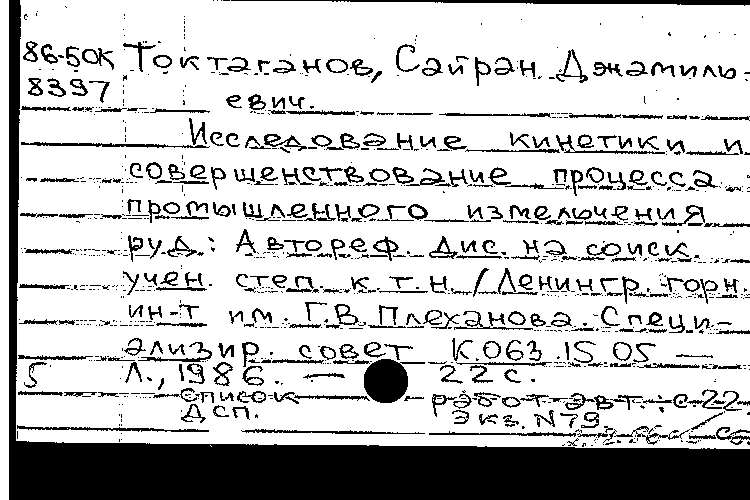 86-5ОК Токтаганов, Сайран Джамиль-
8397 евич.
Исследование кинетики и
совершенствование процесса
промышленного измельчения
руд: Автореф. дис. на соиск.
учен. степ. к т.н. / Ленингр. горн.
ин-т им. Г.В. Плеханова. Специ-
ализир. совет К.063.15 05 —
5 Л., 1986. — 22 с.
Список работ авт.: с.22
ДСП. Экз. N79.